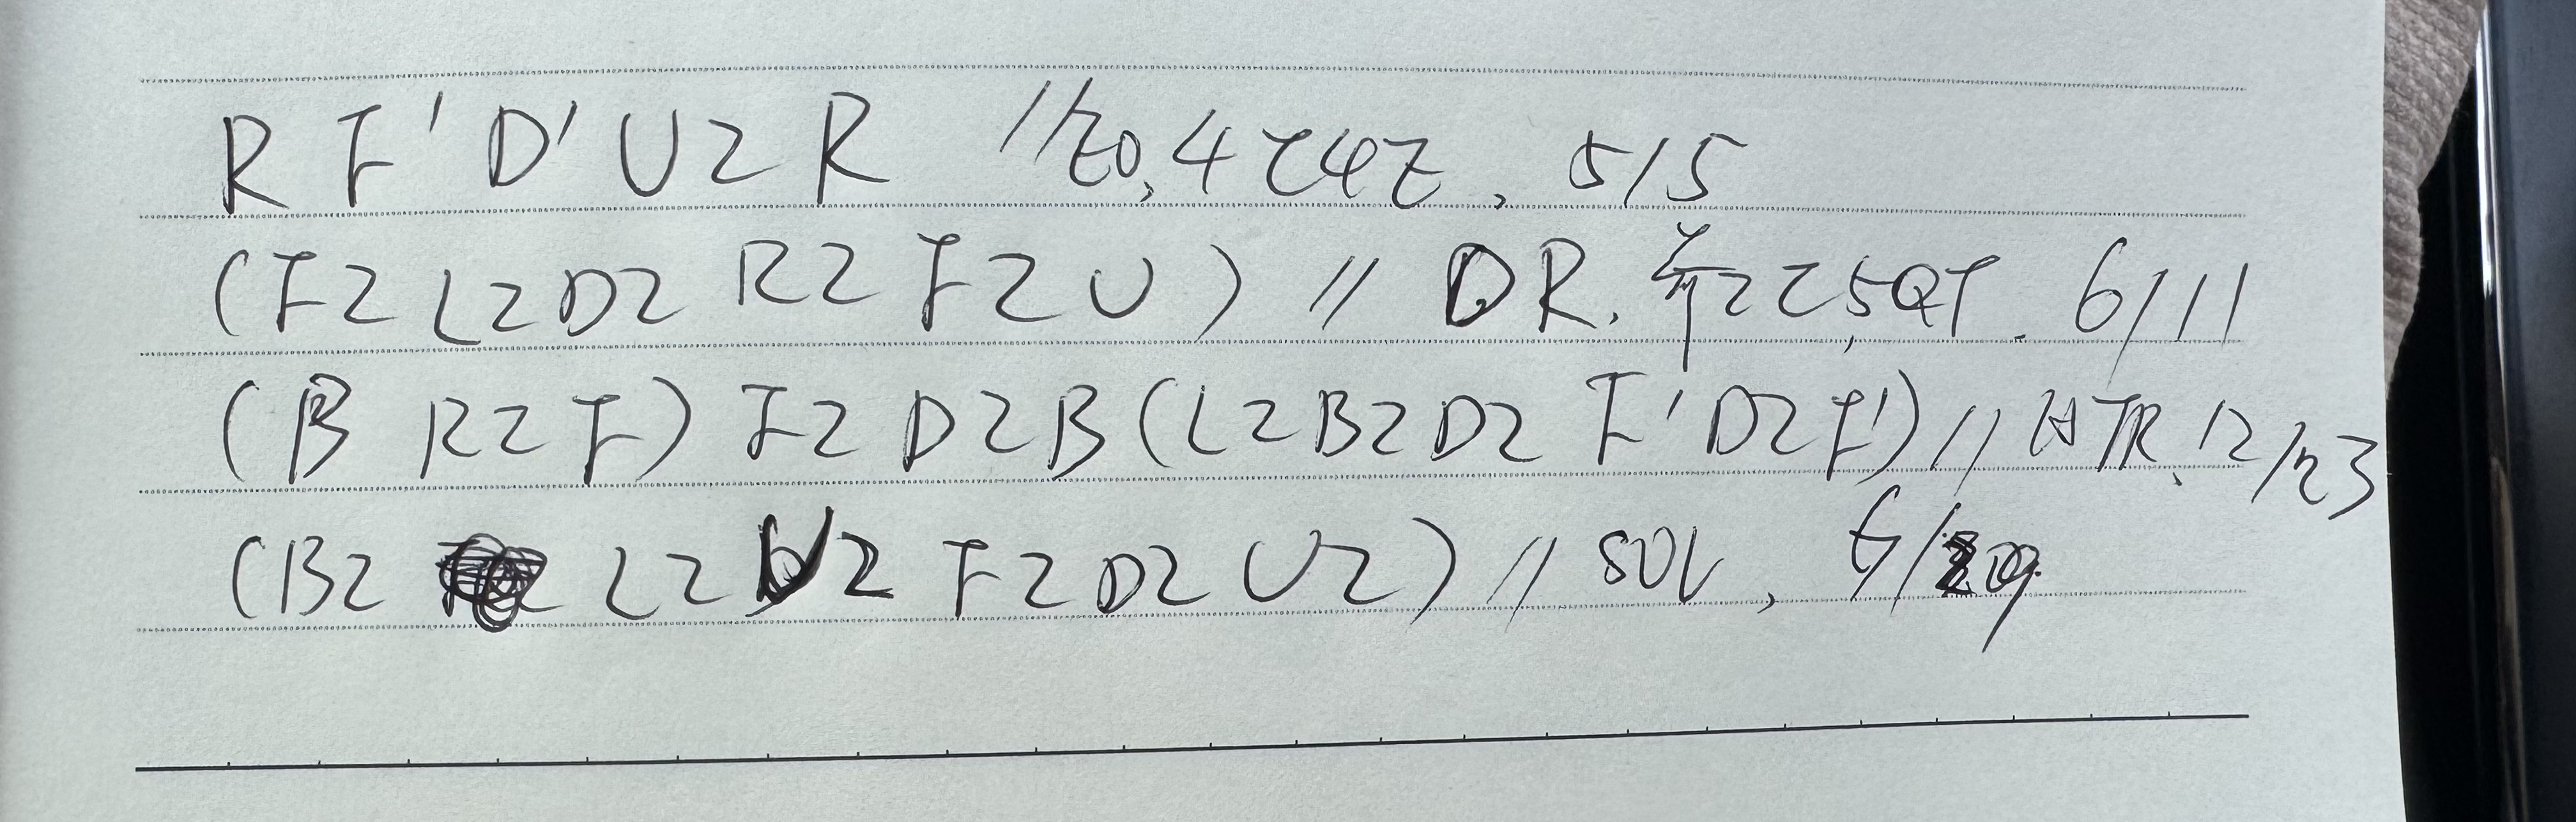 R F' D' U2 R //EO, 4C4E, 5/5
(F2 L2 D2 R2 F2 U) // DR. 2C5QT. 6/11
(B R2 F) F2 D2 B (L2 B2 D2 F' D2 F') // HTR. 12/23
(B2 L2 U2 F2 D2 U2) // SOL, 6/29